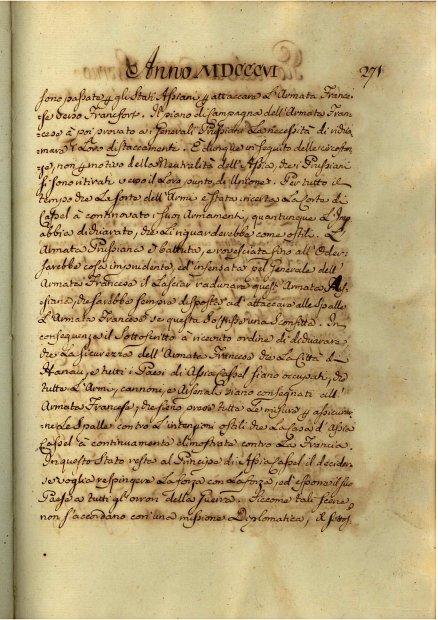 Anno MDCCCVI
271
sono passate p gli Stati Assiani p attaccare L'Armata France-
se verso Francfort. Il piano di Campagna dell'Armata Fran-
cese à poi provato a' Generali Prussiani La necessità di richia-
mare i Loro distaccamenti. E dunque in seguito delle circostan-
ze, non p motivo della Neutralità dell'Assia, che i Prussiani
si sono ritirati verso il Loro punto di Unione. Per tutto il
tempo che La sorte dell'Armi è stata incerta La Corte di
Cassel à continovato i suoi Armamenti, quantunque L'Imp.
abbia dichiarato, che Li riguarderebbe come ostili. L'
Armata Prussiana è battuta, e rovesciata fino all'Oder:
sarebbe cosa imprudente, ed insensata pel Generale dell'
Armata Francese il Lasciar radunare quest'Armata As-
siana, che sarebbe sempre disposta ad attaccare alle spalle
L'Armata Francese se questa soffrisse una sconfitta. In
conseguenza il Sottoscritto à ricevuto ordine di dichiarare,
che La sicurezza dell'Armata Francese che La Città di
Hanau, e tutti i Paesi di Assia Cassel siano occupati, che
tutte L'Armi, cannoni, e Arsenali siano consegnati all'
Armata Francese, che siano prese tutte Le misure p assicurar-
ne Le Spalle contro L'intenzioni ostili che La Casa d'Assia
Cassel à continuamente dimostrate contro La Francia.
In questo Stato resta al Principe di Assia Cassel il decider
se voglia respingere La forza con La forza, ed esporre il suo
Paese a tutti gli orrori della Guerra. Siccome tali scene,
non s'accordano con una missione Diplomatica, il Sottos: